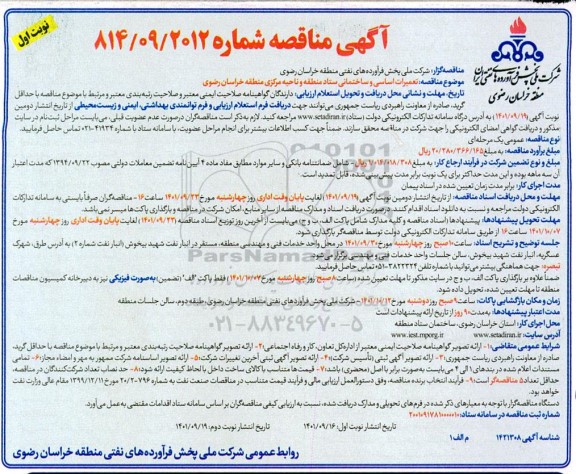 نوبت اول
آگهی مناقصه شماره ۸۱۴/۰۹/۲۰۱۲
شرکت ملی پخش فرآورده‌های نفتی ایران
منطقه خراسان رضوی
مناقصه‌گزار: شرکت ملی پخش فرآورده‌های نفتی منطقه خراسان رضوی
موضوع مناقصه: تعمیرات اساسی و ساختمانی ستاد منطقه و ناحیه مرکزی منطقه خراسان رضوی
تاریخ، مهلت و نشانی محل دریافت و تحویل استعلام ارزیابی: دارندگان گواهینامه صلاحیت ایمنی معتبر و صلاحیت رتبه‌بندی معتبر و مرتبط با موضوع مناقصه با حداقل
گرید، صادره از معاونت راهبردی ریاست جمهوری می‌توانند جهت دریافت فرم استعلام ارزیابی و فرم توانمندی بهداشتی، ایمنی و زیست‌محیطی از تاریخ انتشار دومین
نوبت آگهی (۱۴۰۱/۰۹/۱۹) به آدرس درگاه سامانه تدارکات الکترونیکی دولت (ستاد) www.setadiran.ir مراجعه کنند. لازم به‌ذکر است مناقصه‌گران درصورت عدم عضویت قبلی، می‌بایست مراحل ثبت‌نام در سایت
مذکور و دریافت گواهی امضای الکترونیکی را جهت شرکت در مناقصه محقق سازند. ضمناً جهت کسب اطلاعات بیشتر برای انجام مراحل عضویت، با سامانه ستاد با شماره ۴۱۹۳۴-۰۲۱ تماس حاصل فرمایید.
نوع مناقصه: عمومی یک مرحله‌ای
مبلغ برآورد مناقصه: به مبلغ ۲۰/۲۸۰/۳۶۶/۱۶۵ ریال
مبلغ و نوع تضمین شرکت در فرآیند ارجاع کار: به مبلغ ۱/۰۱۴/۰۱۸/۳۰۸ ریال - شامل ضمانتنامه بانکی و سایر موارد مطابق مفاد ماده ۴ آیین‌نامه تضمین معاملات دولتی مصوب ۱۳۹۴/۰۹/۲۲ که مدت اعتبار
آن سه ماهه بوده و این مدت حداکثر برای یک نوبت برابر مدت پیش‌بینی شده، قابل تمدید است.
مدت اجرای کار: برابر مدت زمان تعیین شده در اسناد پیمان
مهلت و محل دریافت اسناد مناقصه: از تاریخ انتشار دومین نوبت آگهی (۱۴۰۱/۰۹/۱۹) لغایت پایان وقت اداری روز چهارشنبه مورخ ۱۴۰۱/۰۹/۲۳ ساعت ۱۶ - مناقصه‌گران صرفاً بایستی به سامانه تدارکات
الکترونیکی دولت مراجعه و نسبت به دانلود اسناد اقدام کنند. درصورت دریافت اسناد و مدارک مناقصه از سایر منابع، امکان شرکت در مناقصه و بارگذاری پاکت‌ها میسر نمی‌باشد.
مهلت تحویل پیشنهادها: پیشنهادها (اسناد مناقصه و کلیه مدارک شامل پاکت الف، ب و ج) می‌بایست از آخرین روز توزیع اسناد مناقصه (۱۴۰۱/۰۹/۲۳) لغایت پایان وقت اداری روز چهارشنبه مورخ
۱۴۰۱/۱۰/۰۷ ساعت ۱۶ از طریق سامانه تدارکات الکترونیکی دولت توسط مناقصه‌گر بارگذاری شود.
جلسه توضیح و تشریح اسناد: ساعت ۱۰ صبح روز چهارشنبه مورخ ۱۴۰۱/۰۹/۳۰ در محل واحد خدمات فنی و مهندسی منطقه، مستقر در انبار نفت شهید بیخوش (انبار نفت شماره ۲) به آدرس طرق، شهرک
عسگریه، انبار نفت شهید بیخوش، سالن جلسات واحد خدمات فنی و مهندسی برگزار خواهد شد.
تبصره: جهت هماهنگی بیشتر می‌توانید با شماره‌تلفن ۳۸۲۲۳۴-۰۵۱ تماس حاصل فرمایید.
ضمناً علاوه بر بارگذاری پاکت الف، ب و ج در سایت مذکور تا مهلت تعیین شده (ساعت ۸ صبح روز چهارشنبه مورخ ۱۴۰۱/۱۰/۰۷) فقط پاکت "الف" (تضمین) به‌صورت فیزیکی نیز به دبیرخانه کمیسیون مناقصات
منطقه تا مهلت تعیین شده، تحویل داده شود.
زمان و مکان بازگشایی پاکات: ساعت ۹ صبح روز دوشنبه مورخ ۱۴۰۱/۱۰/۱۲ - شرکت ملی پخش فرآورده‌های نفتی منطقه خراسان رضوی، طبقه دوم، سالن جلسات منطقه
مدت اعتبار پیشنهادها: به‌مدت ۹۰ روز از تاریخ ارائه پیشنهادات است
محل اجرای کار: استان خراسان رضوی، ساختمان ستاد منطقه
آدرس سایت: www.setadiran.ir، www.iest.mporg.ir
شرایط عمومی متقاضی: ۱- ارائه تصویر گواهینامه صلاحیت ایمنی معتبر از اداره‌کل تعاون، کار و رفاه اجتماعی ۲- ارائه تصویر گواهینامه صلاحیت رتبه‌بندی معتبر و مرتبط با موضوع مناقصه با حداقل گرید،
صادره از معاونت راهبردی ریاست جمهوری ۳- ارائه تصویر آگهی ثبتی (تأسیس شرکت) ۴- ارائه تصویر آگهی ثبتی آخرین تغییرات شرکت ۵- ارائه تصویر اساسنامه شرکت ممهور به مهر و امضاء مجاز ۶- تمامی
مستندات اعلام شده در بندهای ۱ الی ۴ می‌بایست به‌صورت برابر با اصل (محضری) باشد ۷- قیمت‌ها متناسب با کالای ساخت داخل با لحاظ کیفیت ارائه شود ۸- حد نصاب تعداد شرکت‌کنندگان در مناقصه،
دستگاه مناقصه‌گزار با توجه به معیارهای ذکر شده در فرم‌های تحویلی و مدارک دریافت شده، نسبت به ارزیابی کیفی مناقصه‌گران بر اساس سامانه ستاد اقدامات مقتضی به‌عمل می‌آورد.
تاریخ انتشار نوبت اول: ۱۴۰۱/۰۹/۱۶ تاریخ انتشار نوبت دوم: ۱۴۰۱/۰۹/۱۹
شناسه آگهی ۱۴۲۱۳۰۸ م الف ۱
روابط عمومی شرکت ملی پخش فرآورده‌های نفتی منطقه خراسان رضوی
ParsNamadData
۰۲۱-۸۸۳۴۹۶۷۰-۵